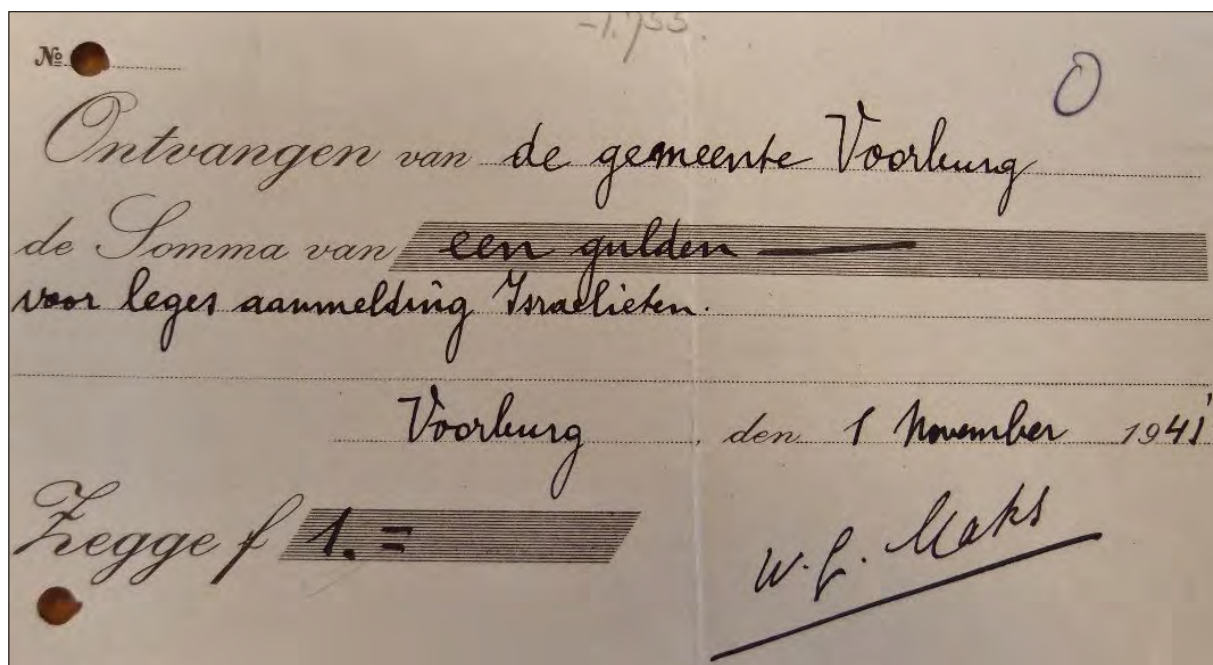 -1.755.
№
O
Ontvangen van de gemeente Voorburg
de Somma van een gulden
voor leges aanmelding Israelieten.
Voorburg, den 1 November 1941
Zegge f 1.=
W. G. Maks